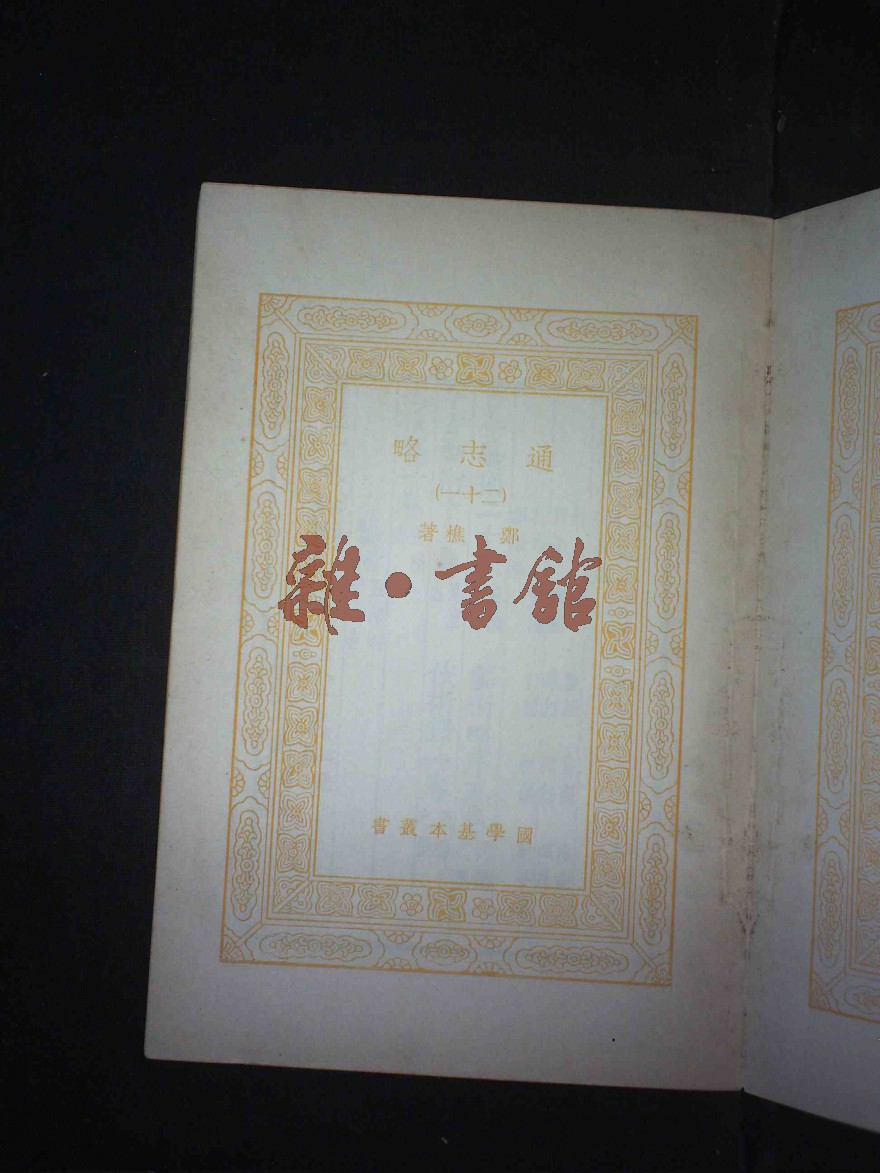 通志略
(二十一)
鄭樵著
雜·書館
國學基本叢書